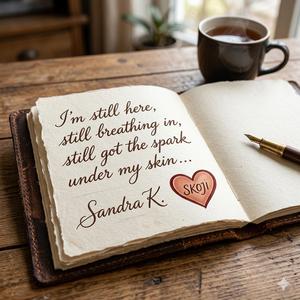 I'm still here,
still breathing in,
still got the spark
under my skin...
Sandra K.
SKOJI